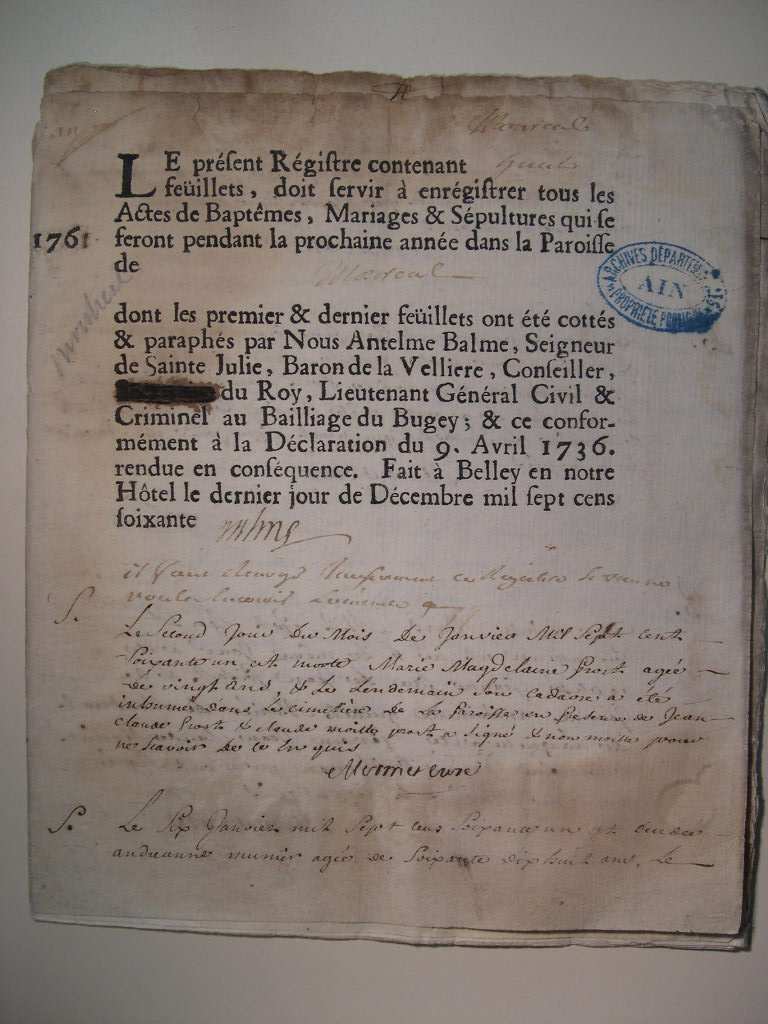 Montreal
LE préſent Régiſtre contenant
feüillets, doit ſervir à enrégiſtrer tous les
Actes de Baptêmes, Mariages & Sépultures qui ſe
1761 feront pendant la prochaine année dans la Paroiſſe
de
dont les premier & dernier feüillets ont été cottés
& paraphés par Nous Antelme Balme, Seigneur
de Sainte Julie, Baron de la Velliere, Conſeiller,
du Roy, Lieutenant Général Civil &
Criminel au Bailliage du Bugey; & ce confor-
mément à la Déclaration du 9. Avril 1736.
rendue en conſéquence. Fait à Belley en notre
Hôtel le dernier jour de Décembre mil ſept cens
ſoixante
ARCHIVES DÉPARTEMENTALES
AIN
PROPRIÉTÉ PUBLIQUE
S.
Le Second Jour Du Mois De Janvier Mil Sept cent
Soixante un est morte Marie Magdelaine Prost agée
De vingt ans, & Le Lendemain Son cadavre a été
inhumé dans Le cimetière De La Paroisse en Présence de Jean
claude Prost & claude prost a signé & non pour
ne Scavoir De ce Enquis
curé
S.
Le Six Janvier mil Sept cens Soixante un est
andreanne munier agée de Soixante dix huit ans, Le